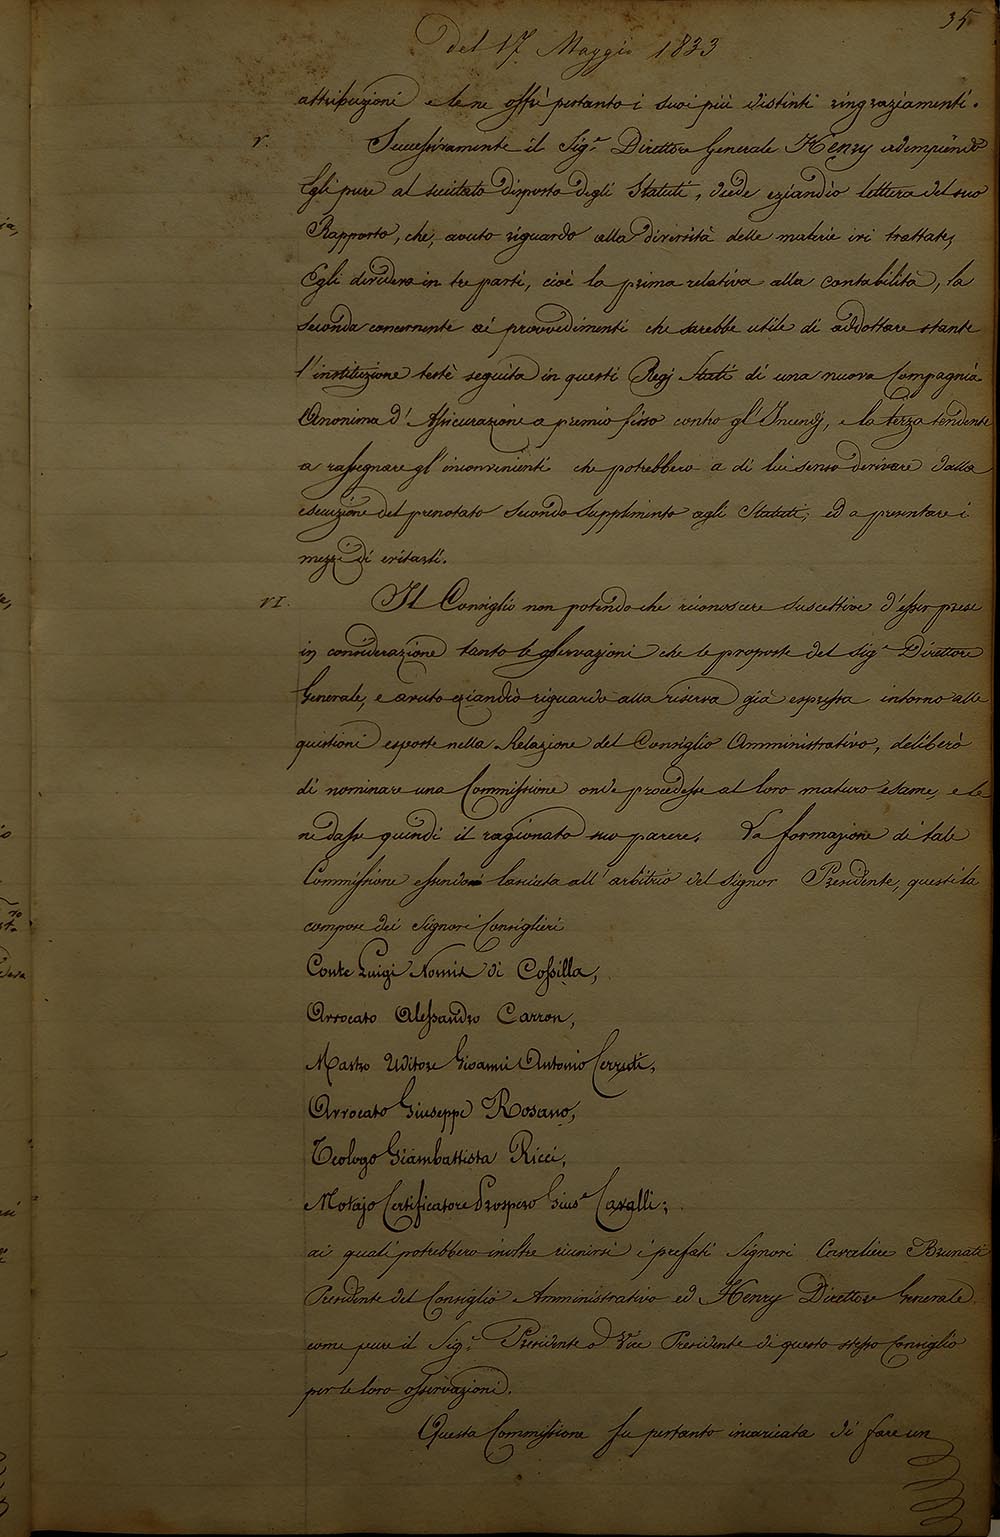 35
Del 17 Maggio 1833
attribuzioni e le ne offrì pertanto i suoi più distinti ringraziamenti.
V. Successivamente il Sig.r Direttore Generale Henry adempiendo
Egli pure al succitato disposto degli Statuti, diede eziandio lettura del suo
Rapporto, che, avuto riguardo alla diversità delle materie ivi trattate,
Egli divideva in tre parti, cioè la prima relativa alla contabilità, la
seconda concernente ai provvedimenti che sarebbe utile di addottare stante
l'instituzione testè seguita in questi Regj Stati di una nuova Compagnia
Anonima d'Assicurazione a premio fisso contro gl'Incendj, e la terza tendente
a rassegnare gl'inconvenienti che potrebbero a di lui senso derivare dalla
esecuzione del prenotato secondo Supplimento agli Statuti; ed a presentare i
mezzi di evitarli.
VI. Il Consiglio non potendo che riconoscere suscettive d'esser prese
in considerazione tanto le osservazioni che le proposte del Sig.r Direttore
Generale, e avuto eziandio riguardo alla riserva già espressa intorno alle
questioni esposte nella Relazione del Consiglio Amministrativo, deliberò
di nominare una Commissione onde procedesse al loro maturo esame, e le
ne dasse quindi il ragionato suo parere. La formazione di tale
Commissione essendosi lasciata all'arbitrio del Signor Presidente, questi la
compose dei Signori Consiglieri
Conte Luigi Nomis di Cossilla,
Avvocato Alessandro Carron,
Mastro Uditore Gioanni Antonio Cerruti,
Avvocato Giuseppe Rosano,
Teologo Giambattista Ricci,
Notajo Certificatore Prospero Gius.e Cavalli;
ai quali potrebbero inoltre riunirsi i prefati Signori Cavaliere Brunati
Presidente del Consiglio Amministrativo ed Henry Direttore Generale
come pure il Sig.r Presidente o Vice Presidente di questo stesso Consiglio
per le loro osservazioni.
Questa Commissione fu pertanto incaricata di fare un